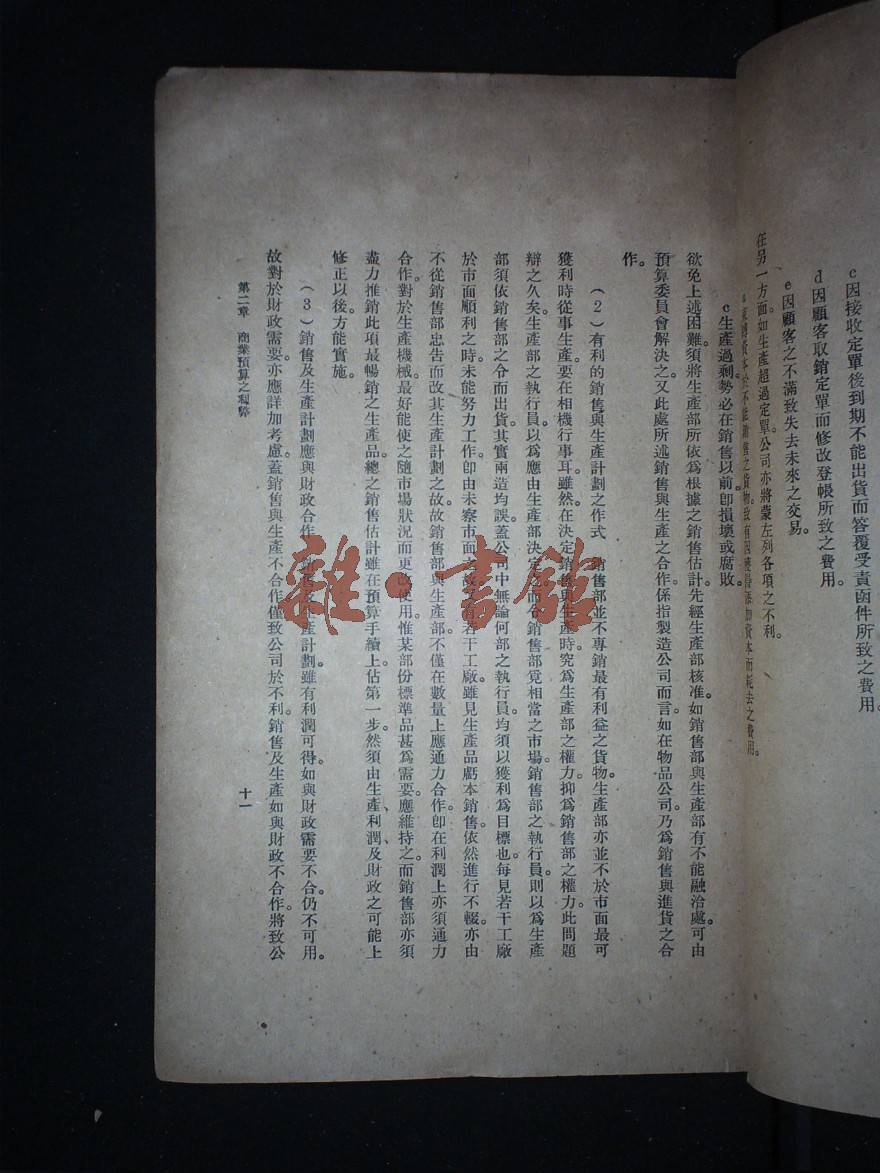 c 因接收定單後到期不能出貨而答覆受責函件所致之費用。
d 因顧客取銷定單而修改登帳所致之費用。
e 因顧客之不滿致失去未來之交易。
在另一方面如生產超過定單公司亦將蒙左列各項之不利。
資本於不能銷售之貨物致有因獲得添加資本而耗去之費用。
c 生產過剩勢必在銷售以前卽損壞或腐敗。
欲免上述困難須將生產部所依爲根據之銷售估計先經生產部核准。如銷售部與生產部有不能融洽處可由
預算委員會解決之。又此處所述銷售與生產之合作係指製造公司而言。如在物品公司。乃爲銷售與進貨之合
作。
（2）有利的銷售與生產計劃之作式　銷售部並不專銷最有利益之貨物。生產部亦並不於市面最可
獲利時從事生產。要在相機行事耳。雖然在決定銷售與生產時。究爲生產部之權力。抑爲銷售部之權力。此問題
辯之久矣。生產部之執行員。以爲應由生產部決定之而令銷售部覓相當之市場。銷售部之執行員。則以爲生產
部須依銷售部之令而出貨。其實兩造均誤。蓋公司中無論何部之執行員。均須以獲利爲目標也。每見若干工廠
於市面順利之時。未能努力工作。卽由未察市面之故。又有若干工廠。雖見生產品虧本銷售。依然進行不輟。亦由
不從銷售部忠告而改其生產計劃之故。故銷售部與生產部。不僅在數量上應通力合作。卽在利潤上亦須通力
合作。對於生產機械。最好能使之隨市場狀況而更改使用。惟某部份標準品甚爲需要。應維持之。而銷售部亦須
盡力推銷此項最暢銷之生產品。總之銷售估計雖在預算手續上。佔第一步。然須由生產、利潤、及財政之可能上
修正以後。方能實施。
（3）銷售及生產計劃應與財政合作　銷售及生產計劃。雖有利潤可得。如與財政需要不合。仍不可用。
故對於財政需要。亦應詳加考慮。蓋銷售與生產不合作。僅致公司於不利。銷售及生產如與財政不合作。將致公
第二章　商業預算之利弊
十一
雜·書館